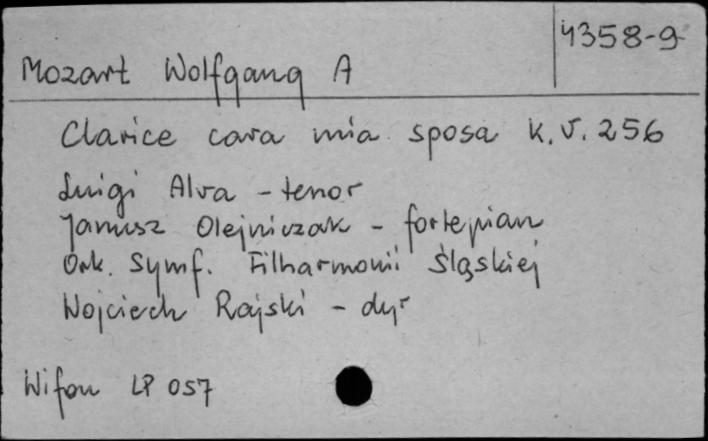 4358-9
Mozart Wolfgang A
Clarice cara mia sposa K.V. 256
Luigi Alva - tenor
Janusz Olejniczak - fortepian
Ork. Symf. Filharmonii Śląskiej
Wojciech Rajski - dyr
Wifon LP 057